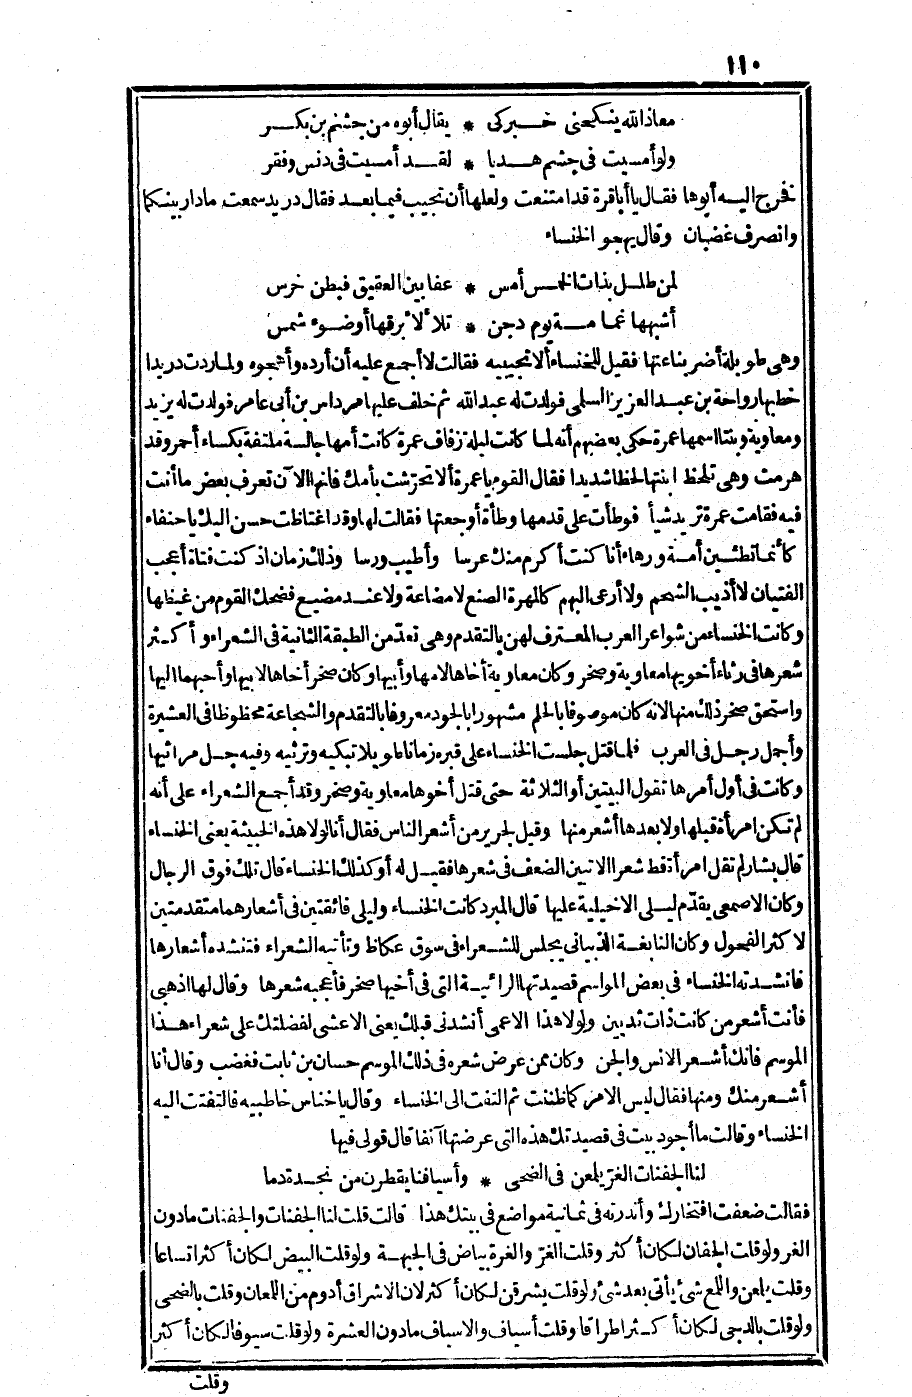 ١١٠
معاذ الله ينكحنى خبركى * يقال أبوه من جشم بن بكر
ولو أمسيت فى جشم هديا * لقد أمسيت فى دنس وفقر
فخرج اليه أبوها فقال يا أباقرة قد امتنعت ولعلها أن تجيب فيما بعد فقال دريد سمعت مادار بينكما
وانصرف غضبان وقال يهجو الخنساء
لمن طلل بذات الخمس أمس * عفا بين العقيق فبطن خرس
أشبهها غمامة يوم دجن * تلألأ برقها أو ضوء شمس
وهى طويلة أضربنا عنها فقيل للخنساء ألا تجيبيه فقالت لا أجمع عليه أن أرده وأهجوه ولماردت دريدا
خطبها رواحة بن عبد العزيز السلمى فولدت له عبد الله ثم خلف عليها مرداس بن أبى عامر فولدت له يزيد
ومعاوية وبنتا اسمها عمرة حكى بعضهم أنه لما كانت ليلة زفاف عمرة كانت أمها جالسة ملتفة بكساء أحمر وقد
هرمت وهى تلحظ ابنتها لحظا شديدا فقال القوم يا عمرة ألا تحرشت بأمك فانها الآن تعرف بعض ما أنت
فيه فقامت عمرة تريد شيأ فوطأت على قدمها وطأة أوجعتها فقالت لها وقد اغتاظت حسن اليك يا حنفاء
كأنما تطئين أمة ورهاء أنا كنت أكرم منك عرسا وأطيب ورسا وذلك زمان اذ كنت فتاة أعجب
الفتيان لا أذيب الشحم ولا أرعى البهم كالمهرة الصنع لا مضاعة ولا عند مضيع فضحك القوم من غيظها
وكانت الخنساء من شواعر العرب المعترف لهن بالتقدم وهى تعد من الطبقة الثانية فى الشعراء وأكثر
شعرها فى رثاء أخويها معاوية وصخر وكان معاوية أخاها لامها وأبيها وكان صخر أخاها لابيها وأحبهما اليها
واستحق صخر ذلك منها لانه كان موصوفا بالحلم مشهورا بالجود معروفا بالتقدم والشجاعة محظوظا فى العشيرة
وأجمل رجل فى العرب فلما قتل جلست الخنساء على قبره زمانا طويلا تبكيه وترثيه وفيه جل مراثيها
وكانت فى أول أمرها تقول البيتين أو الثلاثة حتى قتل أخوها معاوية وصخر وقد أجمع الشعراء على أنه
لم تكن امرأة قبلها ولا بعدها أشعر منها وقيل لجرير من أشعر الناس فقال أنا لولا هذه الخبيثة يعنى الخنساء
قال بشار لم تقل امرأة قط شعرا الا تبين الضعف فى شعرها فقيل له أوكذلك الخنساء قال تلك فوق الرجال
وكان الاصمعى يقدم ليلى الاخيلية عليها قال المبرد كانت الخنساء وليلى فائقتين فى أشعارهما متقدمتين
لاكثر الفحول وكان النابغة الذبيانى يجلس للشعراء فى سوق عكاظ وتأتيه الشعراء فتنشده أشعارها
فانشدته الخنساء فى بعض المواسم قصيدتها الرائية التى فى أخيها صخر فأعجبه شعرها وقال لها اذهبى
فأنت أشعر من كانت ذات ثديين ولولا هذا الاعمى أنشدنى قبلك يعنى الاعشى لفضلتك على شعراء هذا
الموسم فانك أشعر الانس والجن وكان ممن عرض شعره فى ذلك الموسم حسان بن ثابت فغضب وقال أنا
أشعر منك ومنها فقال ليس الامر كما ظننت ثم التفت الى الخنساء وقال يا خناس خاطبيه فالتفتت اليه
الخنساء وقالت ما أجود بيت فى قصيدتك هذه التى عرضتها آنفا قال قولى فيها
لنا الجفنات الغر يلمعن فى الضحى * وأسيافنا يقطرن من نجدة دما
فقالت ضعفت افتخارك وأندرته فى ثمانية مواضع فى بيتك هذا قالت قلت لنا الجفنات والجفنات مادون
الغر ولوقلت الجفان لكان أكثر وقلت الغر والغرة بياض فى الجبهة ولوقلت البيض لكان أكثر اتساعا
وقلت يلمعن واللمع شئ يأتى بعد شئ ولوقلت يشرقن لكان أكثر لان الاشراق أدوم من اللمعان وقلت بالضحى
ولوقلت بالدجى لكان أكثر اطراقا وقلت أسياف والاسياف مادون العشرة ولوقلت سيوفا لكان أكثر
وقلت